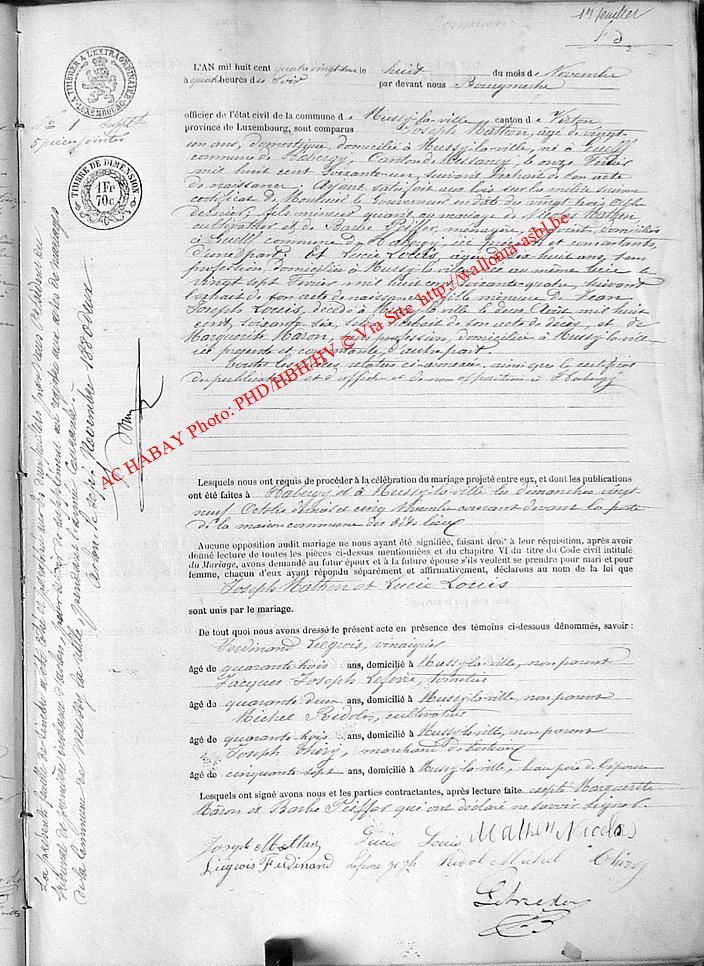 1er feuillet
TIMBRE A L'EXTRAORDINAIRE
LUXEMBOURG
No 1
5 pièces jointes
TIMBRE DE DIMENSION
1 Fr
70c
L'AN mil huit cent quatre vingt deux le huit du mois de Novembre
à quatre heures du Soir par devant nous Bourgmestre
officier de l'état civil de la commune de Mussy-la-ville canton de Virton
province de Luxembourg, sont comparus Joseph Mathen, âgé de vingt
un ans, domestique, domicilié à Mussy-la-ville, né à
commune de Habergy, Canton de Messancy, le onze Février
mil huit cent soixante-un, suivant l'extrait de son acte
de naissance, Ayant satisfait aux lois sur la milice suivant
certificat de Monsieur le Gouverneur en date du vingt trois Octobre
dernier; fils mineur quant au mariage de Nicolas Mathen,
cultivateur et de Barbe Peiffer, ménagère, domiciliés
à commune de Habergy, ici présents et consentants,
d'une part; Et Lucie Louis, âgée de dix huit ans, sans
profession, domiciliée à Mussy-la-ville, née au même lieu le
vingt sept Février mil huit cent soixante-quatre, suivant
l'extrait de son acte de naissance, fille mineure de Jean
Joseph Louis, décédé à Mussy-la-ville le deux Août mil huit
cent soixante six, extrait de son acte de décès, et de
Marguerite Maron, sans profession, domiciliée à Mussy-la-ville
ici présente et consentante, d'autre part
Toutes les pièces relatées ci-annexées, ainsi que le certificat
de publication et d'affiche et de non opposition à Habergy
Lesquels nous ont requis de procéder à la célébration du mariage projeté entre eux, et dont les publications
ont été faites à Habergy et à Mussy-la-ville les dimanches vingt
neuf Octobre dernier et cinq Novembre courant devant la porte
de la maison commune des dits lieux
Aucune opposition audit mariage ne nous ayant été signifiée, faisant droit à leur réquisition, après avoir
donné lecture de toutes les pièces ci-dessus mentionnées et du chapitre VI du titre du Code civil intitulé
du Mariage, avons demandé au futur époux et à la future épouse s'ils veulent se prendre pour mari et pour
femme, chacun d'eux ayant répondu séparément et affirmativement, déclarons au nom de la loi que
Joseph Mathen et Lucie Louis
sont unis par le mariage.
De tout quoi nous avons dressé le présent acte en présence des témoins ci-dessous dénommés, savoir :
Ferdinand Liégeois,
âgé de quarante trois ans, domicilié à Mussy-la-ville, non parent
Jacques Joseph Lefèvre,
âgé de quarante deux ans, domicilié à Mussy-la-ville, non parent
Michel Ridole, cultivateur
âgé de quarante trois ans, domicilié à Mussy-la-ville, non parent
Joseph Thiry, marchand de
âgé de cinquante sept ans, domicilié à Mussy-la-ville, beau père de l'épouse
Lesquels ont signé avons nous et les parties contractantes, après lecture faite excepté Marguerite
Maron et Barbe Peiffer qui ont déclaré ne savoir signer.
Joseph Mathen Lucie Louis Mathen Nicolas
Liégeois Ferdinand Lefèvre Joseph Ridol Michel Thiry
La présente feuille de timbre a été cotée et paraphée par nous Président du
tribunal de première instance d'Arlon, pour servir de supplément au registre aux actes de mariages
de la Commune de Mussy-la-ville, pendant l'année courante.
Arlon le sept Novembre 1880 deux
ACHABAY Photo: PHD/HBH/HV © Via Site http://wallonia-asbl.be